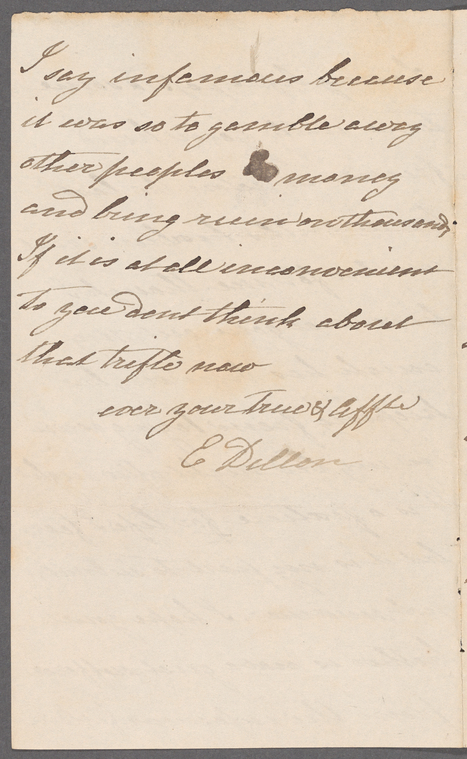 I say infamous because
it was so to gamble away
other peoples money
and bring ruin on thousands
If it is at all inconvenient
to you dont think about
that trifle now
ever your true & Affte
E Dillon